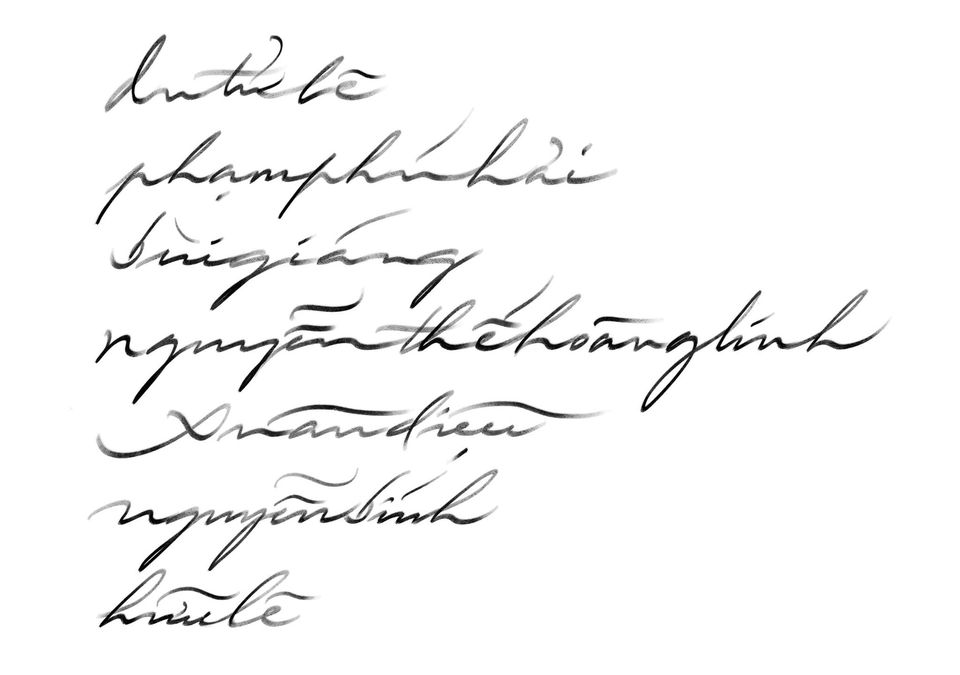 dutửlê
phạmphúhải
bùigiáng
nguyễnthếhoànglinh
Xuândiệu
nguyễnbính
hữulê